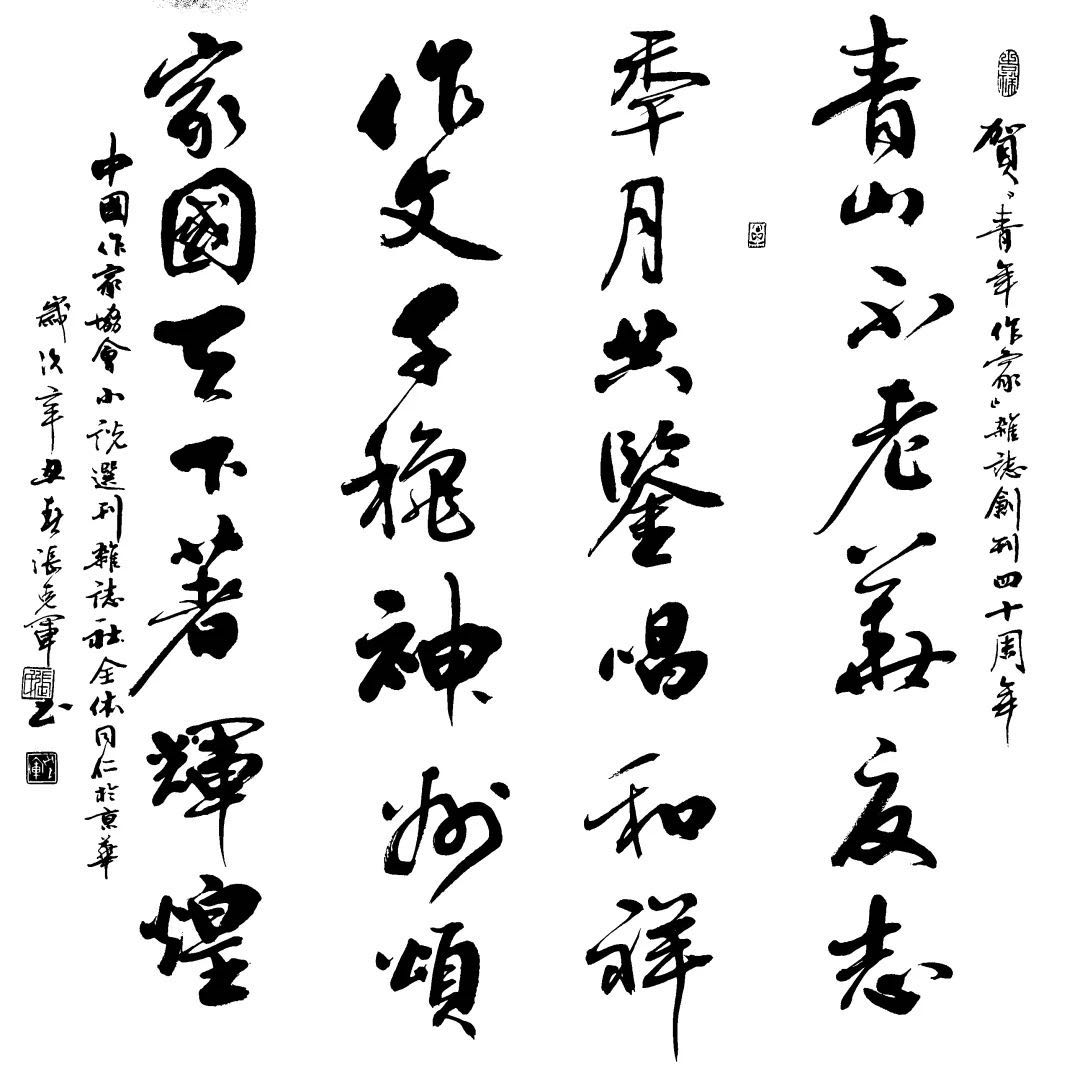 賀「青年作家」雜誌創刊四十周年
青山不老友志
秊月共鑒唱和祥
作文子神州頌
家國天下著輝煌
中國作家協會小説選刊雜誌社全体同仁於京華
歲次辛丑春張克軍書